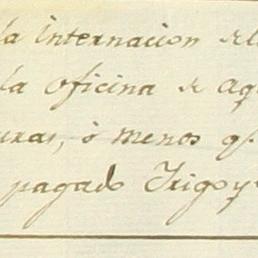 la Internacion de
la oficina de
ò menos q.
pagado Trigo y